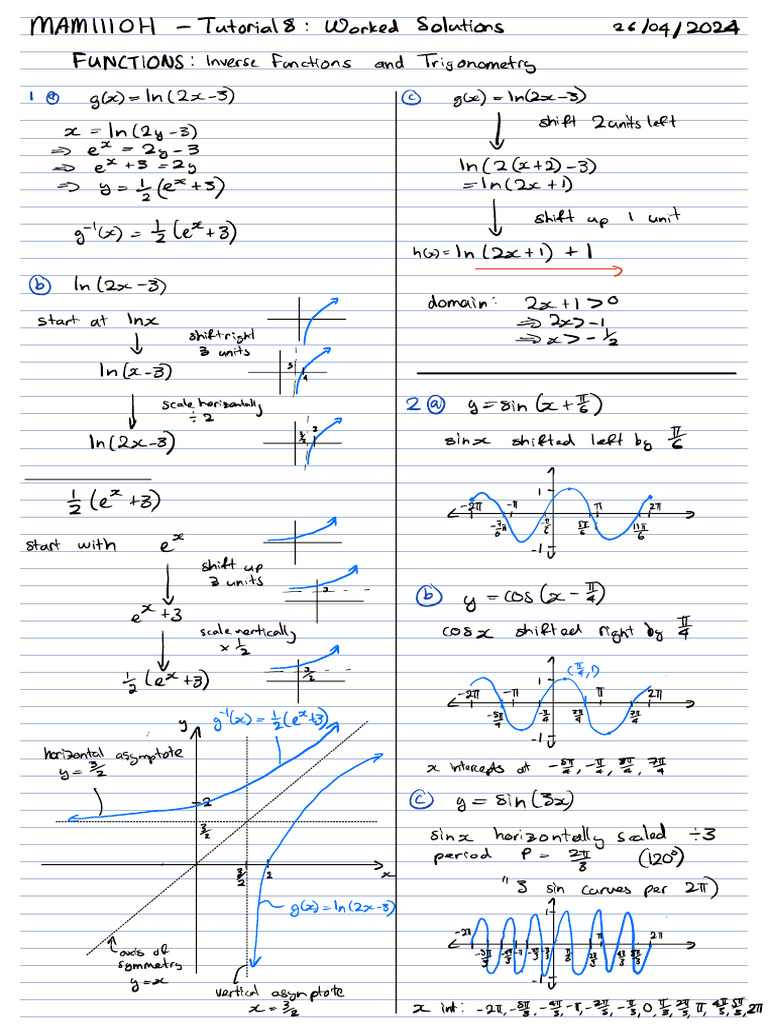 MAM1110H – Tutorial 8: Worked Solutions 26/04/2024
FUNCTIONS: Inverse Functions and Trigonometry
1 (a) g(x) = ln(2x-3)
x = ln(2y-3)
⇒ e^x = 2y-3
⇒ e^x + 3 = 2y
⇒ y = 1/2 (e^x + 3)
g^-1(x) = 1/2 (e^x + 3)
(b) ln(2x-3)
start at lnx
shift right
3 units
3
4
ln(x-3)
scale horizontally
÷ 2
3/2
2
ln(2x-3)
1/2 (e^x + 3)
start with e^x
shift up
3 units
e^x + 3
scale vertically
× 1/2
3/2
1/2 (e^x + 3)
y
g^-1(x) = 1/2 (e^x + 3)
horizontal asymptote
y = 3/2
2
3/2
3/2
2
x
g(x) = ln(2x-3)
axis of
symmetry
y = x
vertical asymptote
x = 3/2
(c) g(x) = ln(2x-3)
shift 2 units left
ln(2(x+2)-3)
= ln(2x+1)
shift up 1 unit
h(x) = ln(2x+1) + 1
domain: 2x+1 > 0
⇒ 2x > -1
⇒ x > -1/2
2 (a) y = sin(x + π/6)
sinx shifted left by π/6
1
-2π -π π 2π
-π/6 5π/6 11π/6
-1
(b) y = cos(x - π/4)
cosx shifted right by π/4
(π/4, 1)
1
-2π -π π 2π
-5π/4 -π/4 3π/4 7π/4
-1
x intercepts at -5π/4, -π/4, 3π/4, 7π/4
(c) y = sin(3x)
sinx horizontally scaled ÷3
period P = 2π/3 (120°)
"3 sin curves per 2π)
1
-2π π 2π
-1
x int: -2π, -5π/3, -4π/3, -π, -2π/3, -π/3, 0, π/3, 2π/3, π, 4π/3, 5π/3, 2π